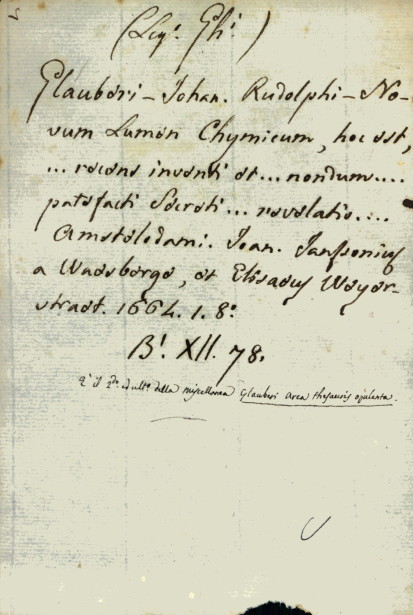 (Leg.¹ Ph.¹)
Glauberi – Johan. Rudolphi – No-
vum Lumen Chymicum, hoc est,
... recens inventi et ... nondum ....
patefacti Secreti ... revelatio ....
Amstelodami. Joan. Janssonius
a Waesberge, et Elisaeus Weyer-
straet. 1664. 1. 8.°
B.¹ XII. 78.
È il 2.do ed ult.o della miscellanea Glauberi Arca thesauris opulenta.